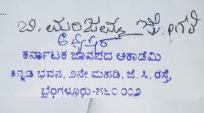 ಅಧ್ಯಕ್ಷರು
ಕರ್ನಾಟಕ ಜಾನಪದ ಅಕಾಡೆಮಿ
ಕನ್ನಡ ಭವನ, ೨ನೇ ಮಹಡಿ, ಜೆ. ಸಿ. ರಸ್ತೆ,
ಬೆಂಗಳೂರು-೫೬೦ ೦೦೨